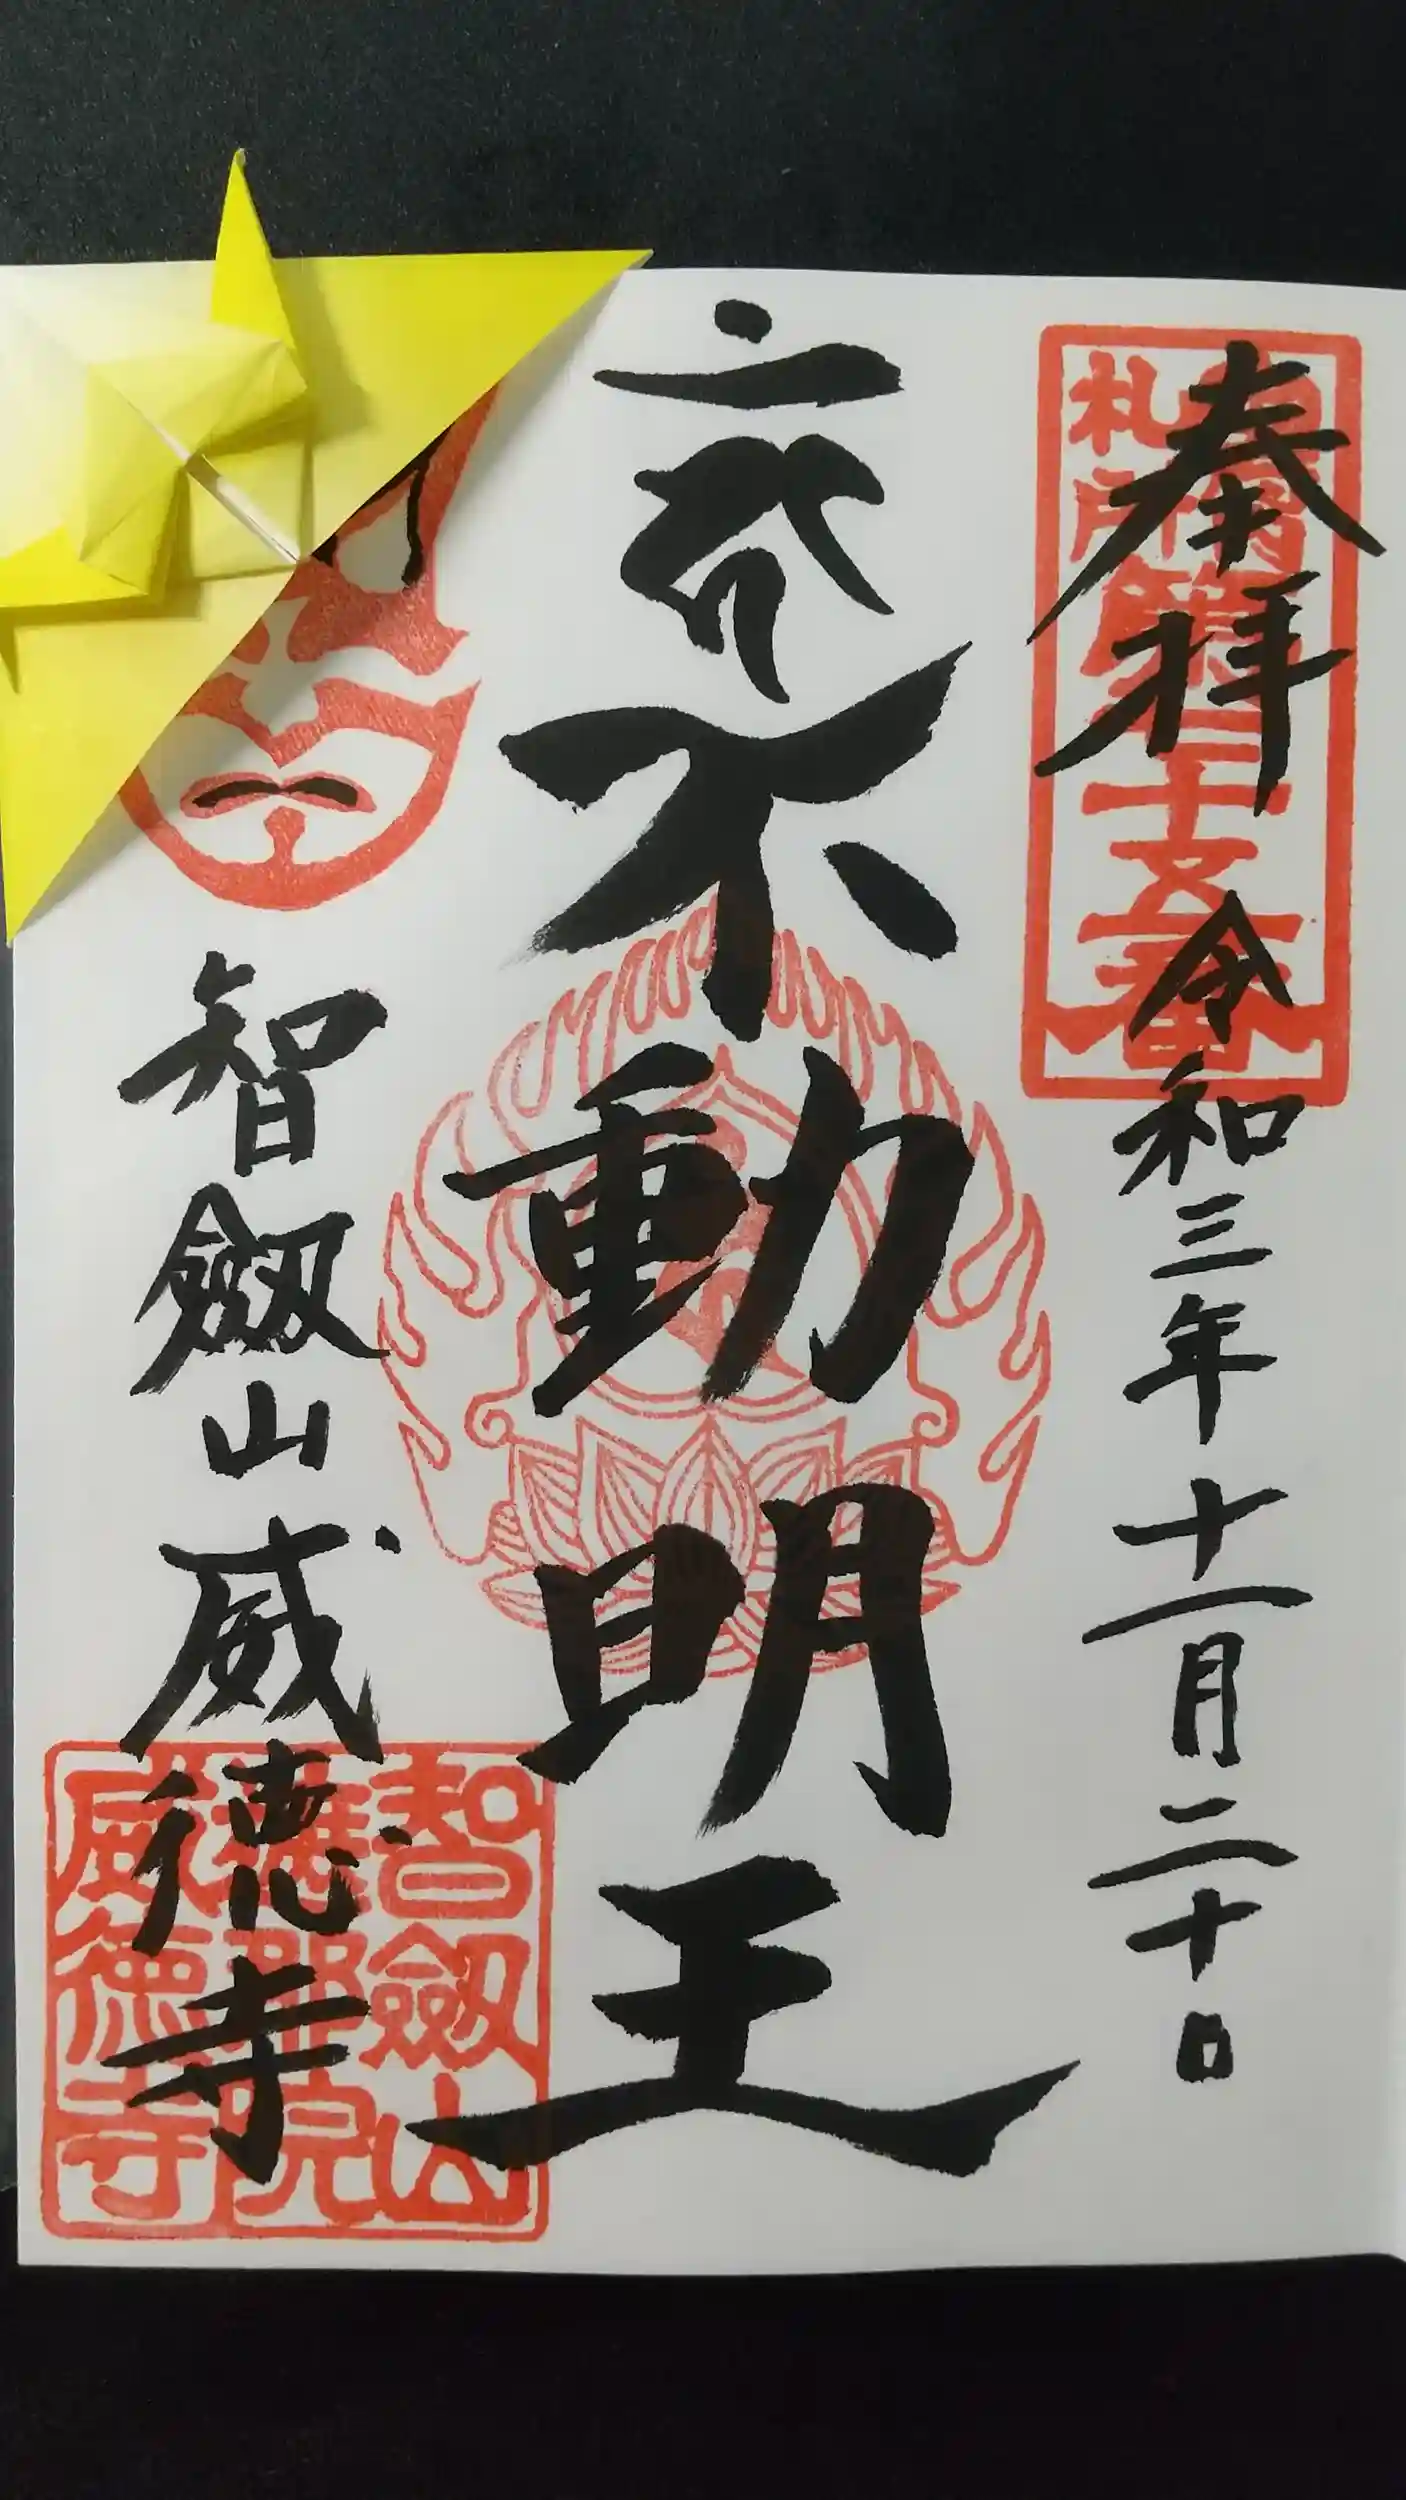 奉拝
令和三年十一月二十日
不動明王
智劔山威徳寺
札所第三十五番
智劔山
院
威徳寺